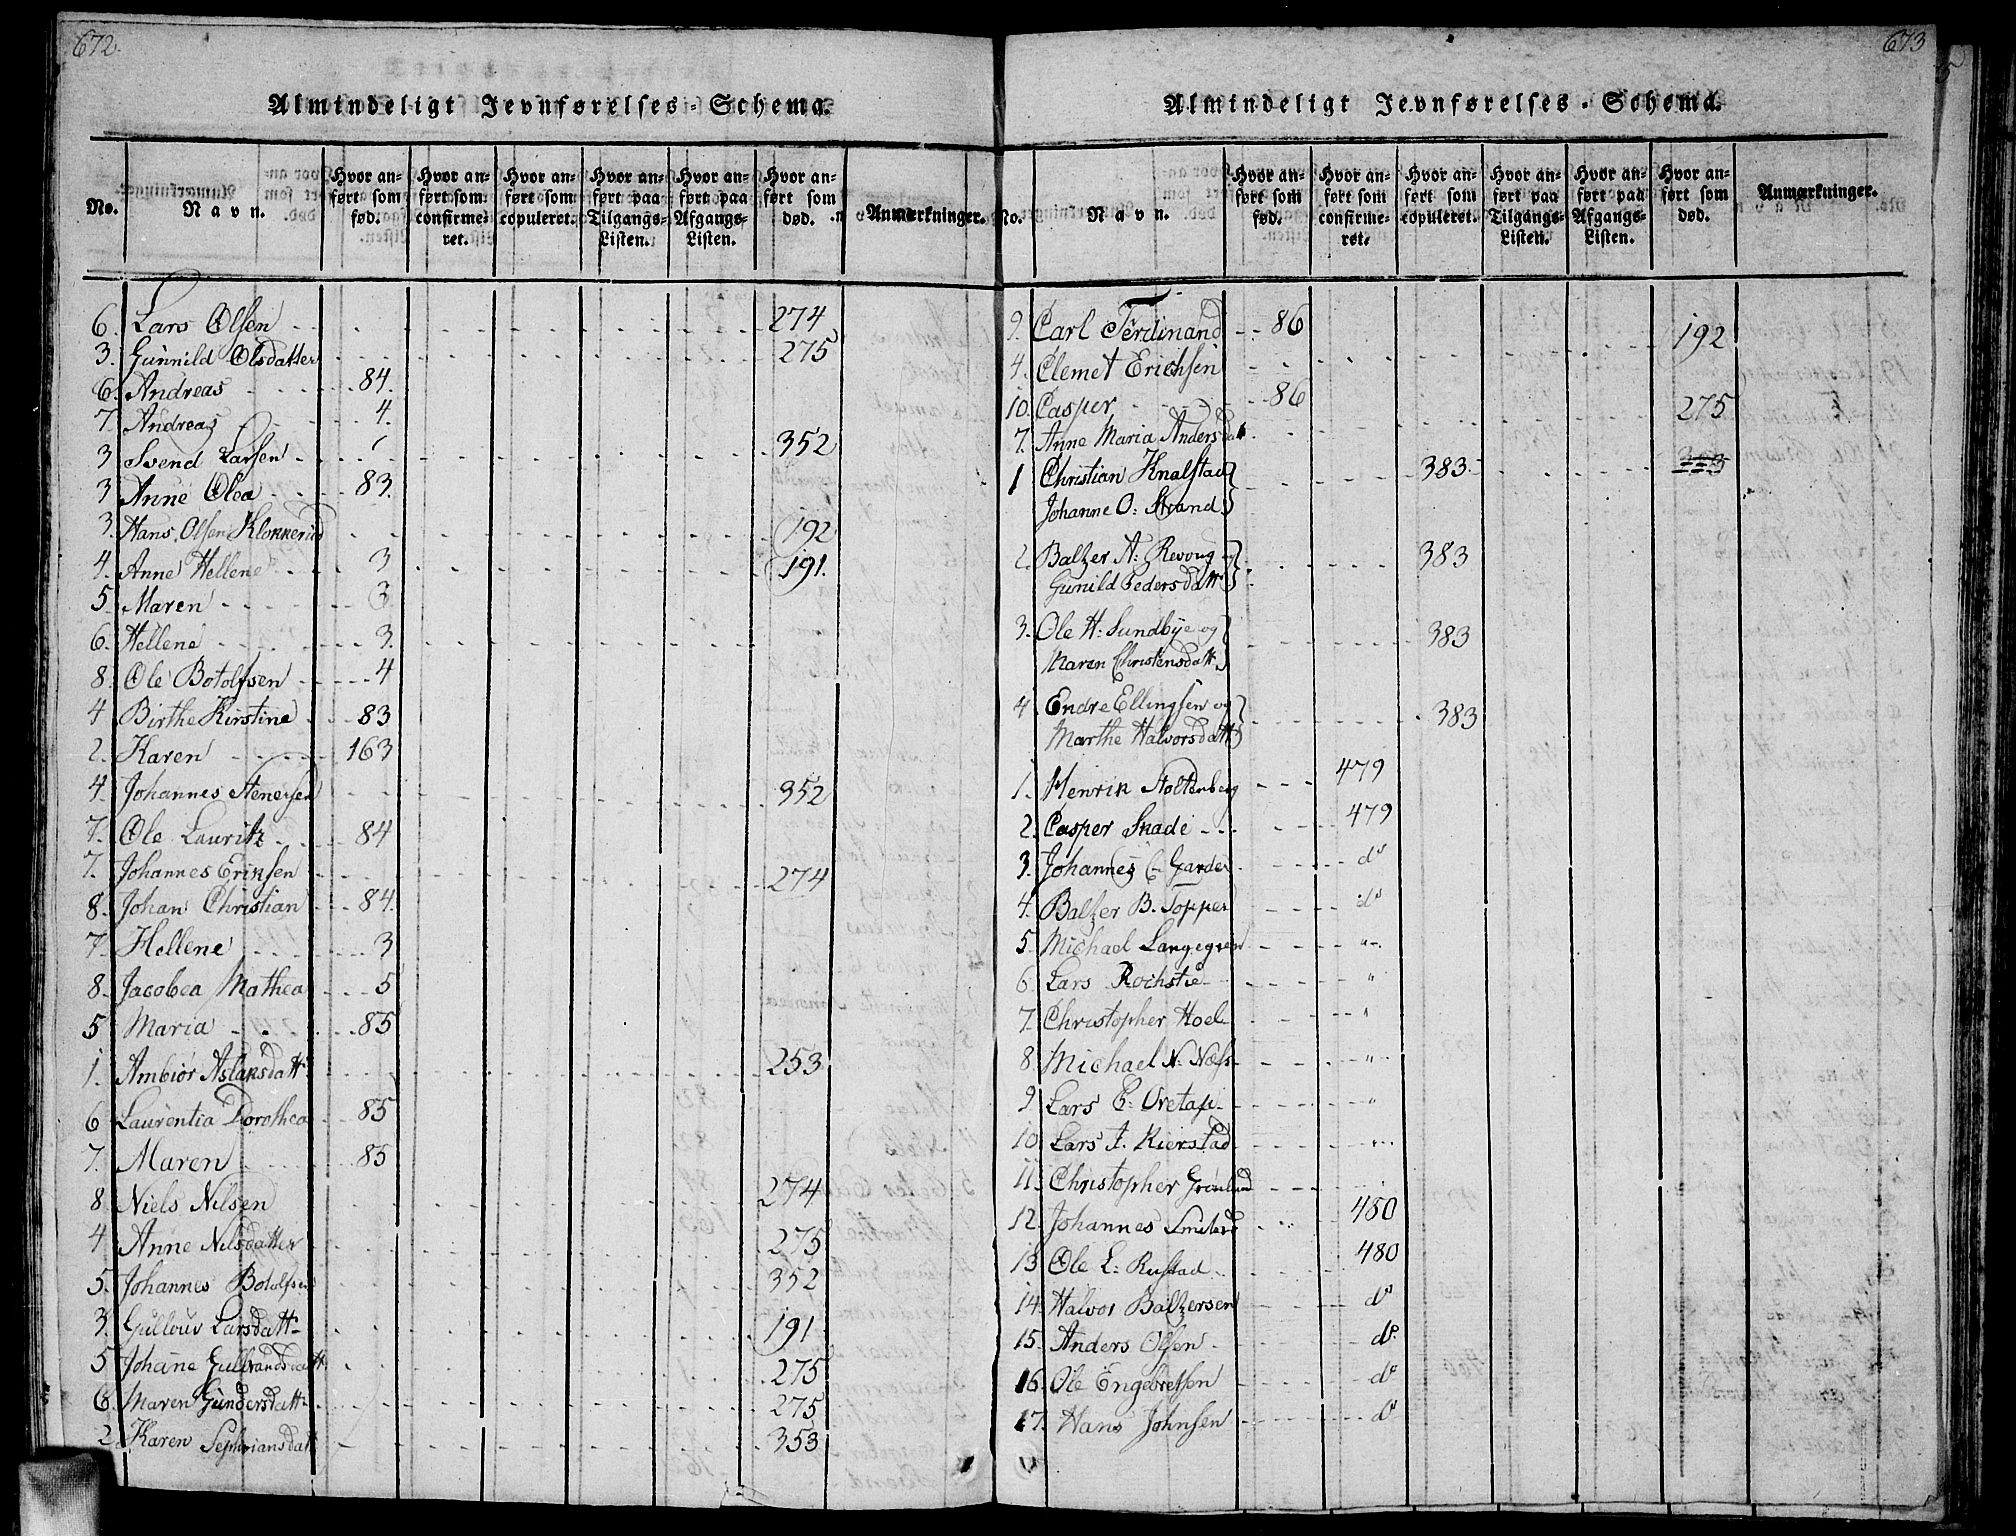 672.
Almindeligt Jevnførelses-Schema.
No.
Navn.
Hvor anført som fød.
Hvor anført som confirmeret.
Hvor anført som copuleret.
Hvor anført paa Tilgangs-Listen.
Hvor anført paa Afgangs-Listen.
Hvor anført som død.
Anmærkninger.
6. Lars Olsen 274
3. Gunnild Olsdatter 275
6. Andreas 84.
7. Andreas 4.
3 Svend Larsen 352
3 Anne Olea 83.
3. Hans Olsen Klokkerud 192
4. Anne Hellene 3
5. Maren 3
6. Hellene 3.
8. Ole Botolfsen 4
4 Birthe Kirstine 83
2. Karen 163
4. Johannes Stenersen 352
7. Ole Lauritz 84
7. Johannes Eriksen 274
8. Johan Christian 84.
7. Hellene 3
8. Jacobea Mathea 5
5 Maria 85
1. Ambiør Aslaksdatt 253
6 Laurentia Dorothea 85
7. Maren 85
8 Niels Nilsen 274
4 Anne Nilsdatter 275
5. Johannes Botolfsen 352
3. Gullouv Larsdatt 191
5 Johane Gulbrandsdatt 275
6. Maren Gundersdatt 275
2. Karen Sephriansdatt 353
673
Almindeligt Jevnførelses-Schema.
No.
Navn.
Hvor anført som fød.
Hvor anført som confirmeret.
Hvor anført som copuleret.
Hvor anført paa Tilgangs-Listen.
Hvor anført paa Afgangs-Listen.
Hvor anført som død.
Anmærkninger.
9. Carl Ferdinand 86
4. Clemet Erichsen 192
10. Casper 86
7. Anne Maria Andersdatt 275
1 Christian Knalstad 383
Johanne O: Strand
2. Baltzer A: Revoug og 383
Gunild Pedersdatt
3. Ole H: Sundbye og 383
Maren Christensdatt
4 Endre Ellingsen og 383
Marthe Halvorsdatt
1. Henrik Stoltenberg 479
2. Casper Skade 479
3. Johannes C. Garder do
4. Baltzer B. Topper do
5. Michael Langegren "
6. Lars Rochstie "
7. Christopher Hoel "
8. Michael N: Næss "
9 Lars C: Ovetap "
10. Lars J. Kierstad "
11. Christopher Grønlund
12. Johannes 480
13 Ole L: Rustad 480
14. Halvor Baltzersen do
15. Anders Olsen do
16. Ole Engebretsen do
17. Hans Johnsen do